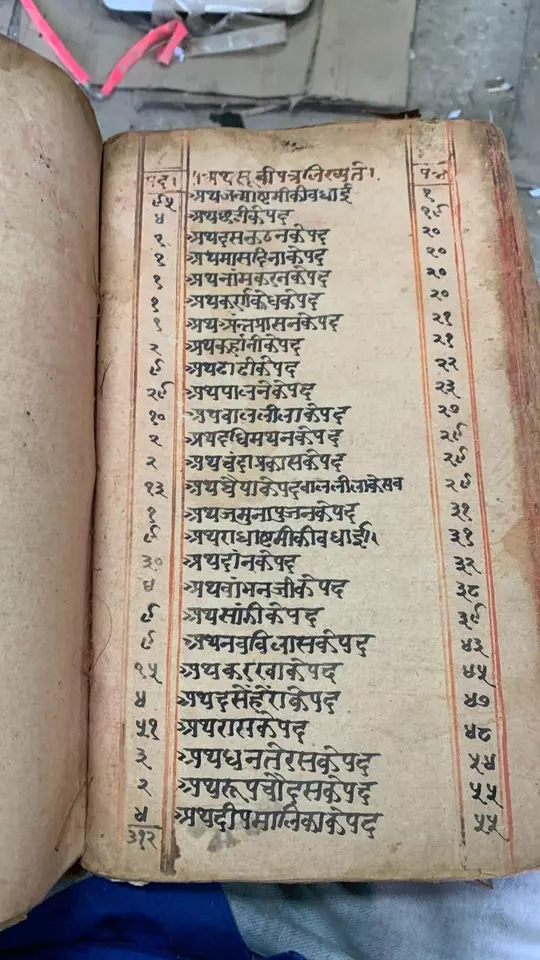 पद। ॥अथसूचीपत्रलिख्यते। पत्र
९५ अथजन्माष्टमीकीवधाई १
४ अथछठीकेपद १९
१ अथदसनुठनकेपद २०
१ अथमासदिनाकेपद २०
१ अथनांमकरनकेपद २०
१ अथकर्णवेधकेपद २०
१ अथअंन्नप्रासनकेपद २१
२ अथकहांनीकेपद २१
९ अथढाढीकेपद २२
२९ अथपालनेकेपद २३
१० अथवाललीलाकेपद २७
२ अथदधिमथनकेपद २९
२ अथचंदाप्रकासकेपद २९
१३ अथघैयाकेपदवाललीलाकेसव २९
१ अथजमुनापुजनकेपद ३१
९ अथराधाष्टमीकीवधाई।। ३१
३० अथदांनकेपद ३२
४ अथवांमनजीकेपद ३८
९ अथसांझीकेपद ३९
९ अथनवविलासकेपद ४३
१५ अथकरखाकेपद ४५
४ अथदसेंहेंराकेपद ४७
५१ अथरासकेपद ४८
३ अथधनतेरसकेपद ५४
२ अथरूपचौदसकेपद ५५
४ अथदीपमालिकाकेपद ५५
३१२